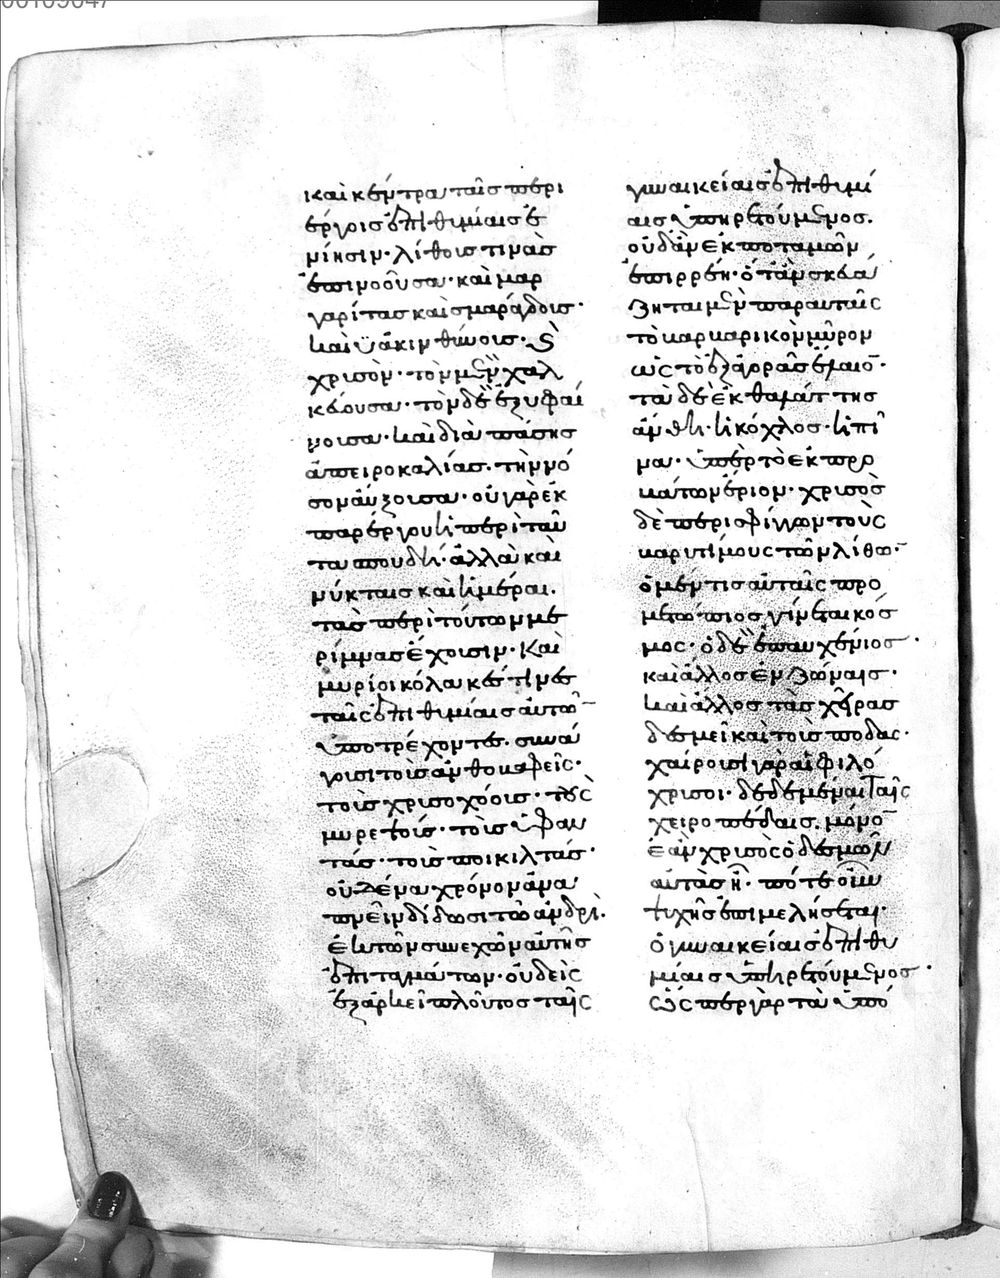 00109047
καὶ κέντρα ταῖς περι
έργοις ἐπιθυμίαις ἐ
μίησιν· λίθους τινὰς
ἐπινοοῦσα· καὶ μαρ
γαρίτας καὶ σμαράγδους·
καὶ ὑάκινθίνους· ϛ
χρυσον· τὸν μὲν χαλ
κεύουσα· τὸν δὲ ἐξυφαί
νουσα· καὶ διὰ πάσης
ἀπειροκαλίας· τὴν νό
σον αὔξουσα· οὐ γὰρ ἐκ
παρέργου ἡ περὶ ταῦ
τα σπουδὴ· ἀλλὰ καὶ
νύκτας καὶ ἡμέραι.
τὰς περὶ τούτων με
ρίμνας ἔχουσιν· Καὶ
μυρίοι κόλακές τινες
ταῖς ἐπιθυμίαις αὐτῶ
ὑποτρέχοντες. συνά
γουσι τοὺς ἀνθοβαφεῖς·
τοὺς χρυσοχόους· τοὺς
μυρεψούς· τοὺς ὑφαν
τάς· τοὺς ποικιλτάς·
οὐδένα χρόνον ἀνα
πνεῖν δίδωσι τῶ ἀνδρὶ.
ἐκ τῶν συνεχῶν αὐτῆς
ἐπιταγμάτων· οὐδεὶς
ἐξαρκεῖ πλοῦτος ταῖς
γυναικείαις ἐπιθυμί
αις ὑπηρετούμενος.
οὐδ' ἂν ἐκ ποταμῶν
ἐπιρρέῃ· ὅταν σκευά
ζηται μὲν παρ αυταῖς
τὸ βαρβαρικὸν μύρον
ὡς τὸ ἐξ ἀγορᾶς ἔλαιο·
τὰ δὲ ἐκ θαλάττης
ἄνθη· ἡ κόχλος· ἡ πῖ
να· ὑπὲρ τὸ ἐκ προ
βάτων ἔριον· χρυσὸς
δὲ περισφίγγων τοὺς
βαρυτίμους τῶν λίθω·
ὁ μέν τις αὐταῖς προ
μετώπιος γίνεται κόσ
μος· ὁ δὲ ἐπαυχένιος·
καὶ ἄλλος ἐν ζώναις·
καὶ ἄλλος τὰς χεῖρας
δεσμεῖ καὶ τοὺς πόδας·
χαίρουσι γὰρ αἱ φιλό
χρυσοι· δεδεμέναι ταῖς
χειροπέδαις. μόνο
ἐὰν χρυσὸς ὁ δεσμῶν
αὐτὰς ᾖ· πότε οὖν
ψυχῆς ἐπιμελήσεται·
ὁ γυναικείαις ἐπιθυ
μίαις ὑπηρετούμενος·
ὥσπερ γὰρ τὰ ὑπό